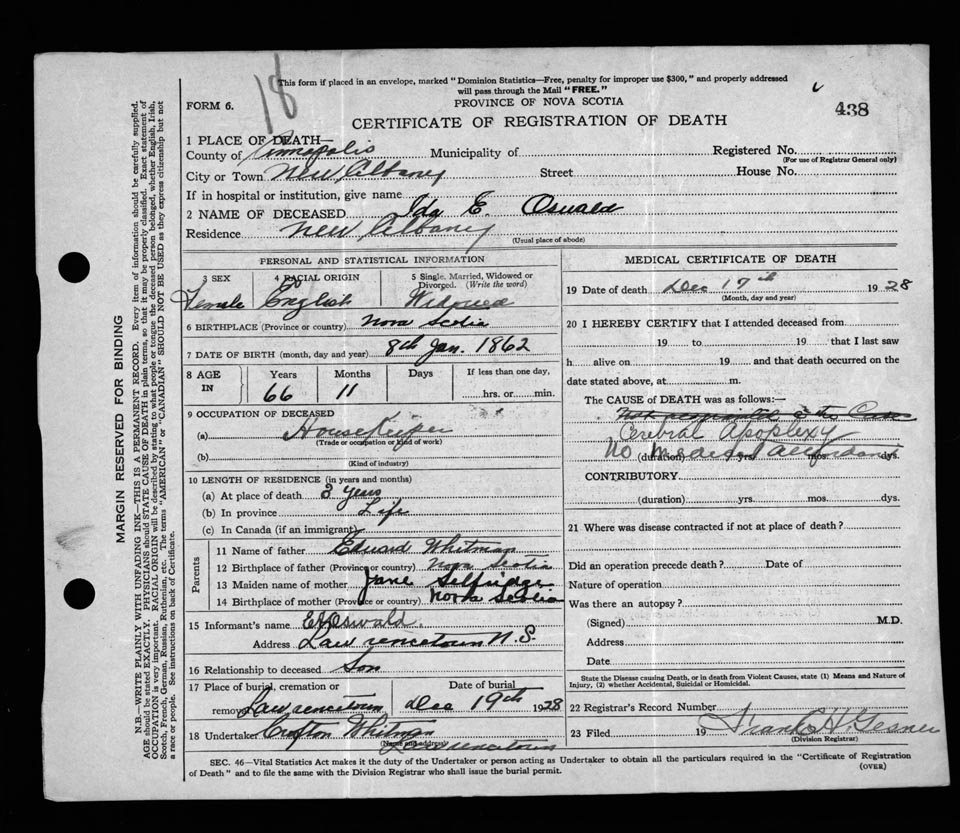 18
This form if placed in an envelope, marked "Dominion Statistics—Free, penalty for improper use $300," and properly addressed
will pass through the Mail "FREE."
FORM 6.
PROVINCE OF NOVA SCOTIA
438
CERTIFICATE OF REGISTRATION OF DEATH
1 PLACE OF DEATH—
County of Annapolis Municipality of Registered No.
(For use of Registrar General only)
City or Town New Albany Street House No.
If in hospital or institution, give name
2 NAME OF DECEASED Ida E. Oswald
Residence New Albany
(Usual place of abode)
PERSONAL AND STATISTICAL INFORMATION
3 SEX 4 RACIAL ORIGIN 5 Single, Married, Widowed or
Divorced. (Write the word)
Female English Widowed
6 BIRTHPLACE (Province or country) Nova Scotia
7 DATE OF BIRTH (month, day and year) 8th Jan. 1862
8 AGE IN Years Months Days If less than one day,
66 11 hrs. or min.
9 OCCUPATION OF DECEASED
(a) HouseKeeper
(Trade or occupation or kind of work)
(b)
(Kind of industry)
10 LENGTH OF RESIDENCE (in years and months)
(a) At place of death 3 years
(b) In province Life
(c) In Canada (if an immigrant)
Parents
11 Name of father Edward Whitman
12 Birthplace of father (Province or country) Nova Scotia
13 Maiden name of mother Jane Selfridge
14 Birthplace of mother (Province or country) Nova Scotia
15 Informant's name Oswald.
Address Lawrencetown N.S.
16 Relationship to deceased Son
17 Place of burial, cremation or Date of burial
removal Lawrencetown Dec 19th 1928
18 Undertaker Crofton Whitman
(Name and address)
Lawrencetown
MEDICAL CERTIFICATE OF DEATH
19 Date of death Dec 17th 1928
(Month, day and year)
20 I HEREBY CERTIFY that I attended deceased from
19 to 19 that I last saw
h alive on 19 and that death occurred on the
date stated above, at m.
The CAUSE of DEATH was as follows:—
Cerebral Apoplexy
No Medical Attendant
(duration) yrs. mos. dys.
CONTRIBUTORY
(duration) yrs. mos. dys.
21 Where was disease contracted if not at place of death?
Did an operation precede death? Date of
Nature of operation
Was there an autopsy?
(Signed) M.D.
Address
Date
State the Disease causing Death, or in death from Violent Causes, state (1) Means and Nature of
Injury, (2) whether Accidental, Suicidal or Homicidal.
22 Registrar's Record Number
23 Filed 19 Frank H Gesner
(Division Registrar)
SEC. 46—Vital Statistics Act makes it the duty of the Undertaker or person acting as Undertaker to obtain all the particulars required in the "Certificate of Registration
of Death" and to file the same with the Division Registrar who shall issue the burial permit.
(OVER)
MARGIN RESERVED FOR BINDING
N.B.—WRITE PLAINLY WITH UNFADING INK—THIS IS A PERMANENT RECORD. Every item of information should be carefully supplied.
AGE should be stated EXACTLY. PHYSICIANS should STATE CAUSE OF DEATH in plain terms, so that it may be properly classified. Exact statement of
OCCUPATION is very important. RACIAL ORIGIN will be described by stating to what people or tongue the deceased person belonged, whether English, Irish,
Scotch, French, German, Russian, Ruthenian, etc. The terms "AMERICAN" or "CANADIAN" SHOULD NOT BE USED as they express citizenship but not
a race or people. See instructions on back of Certificate.